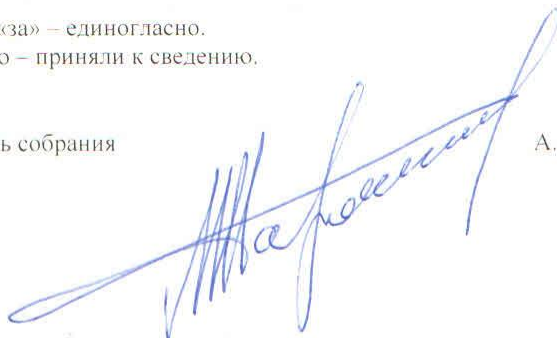 «за» – единогласно.
о – приняли к сведению.
ь собрания А.